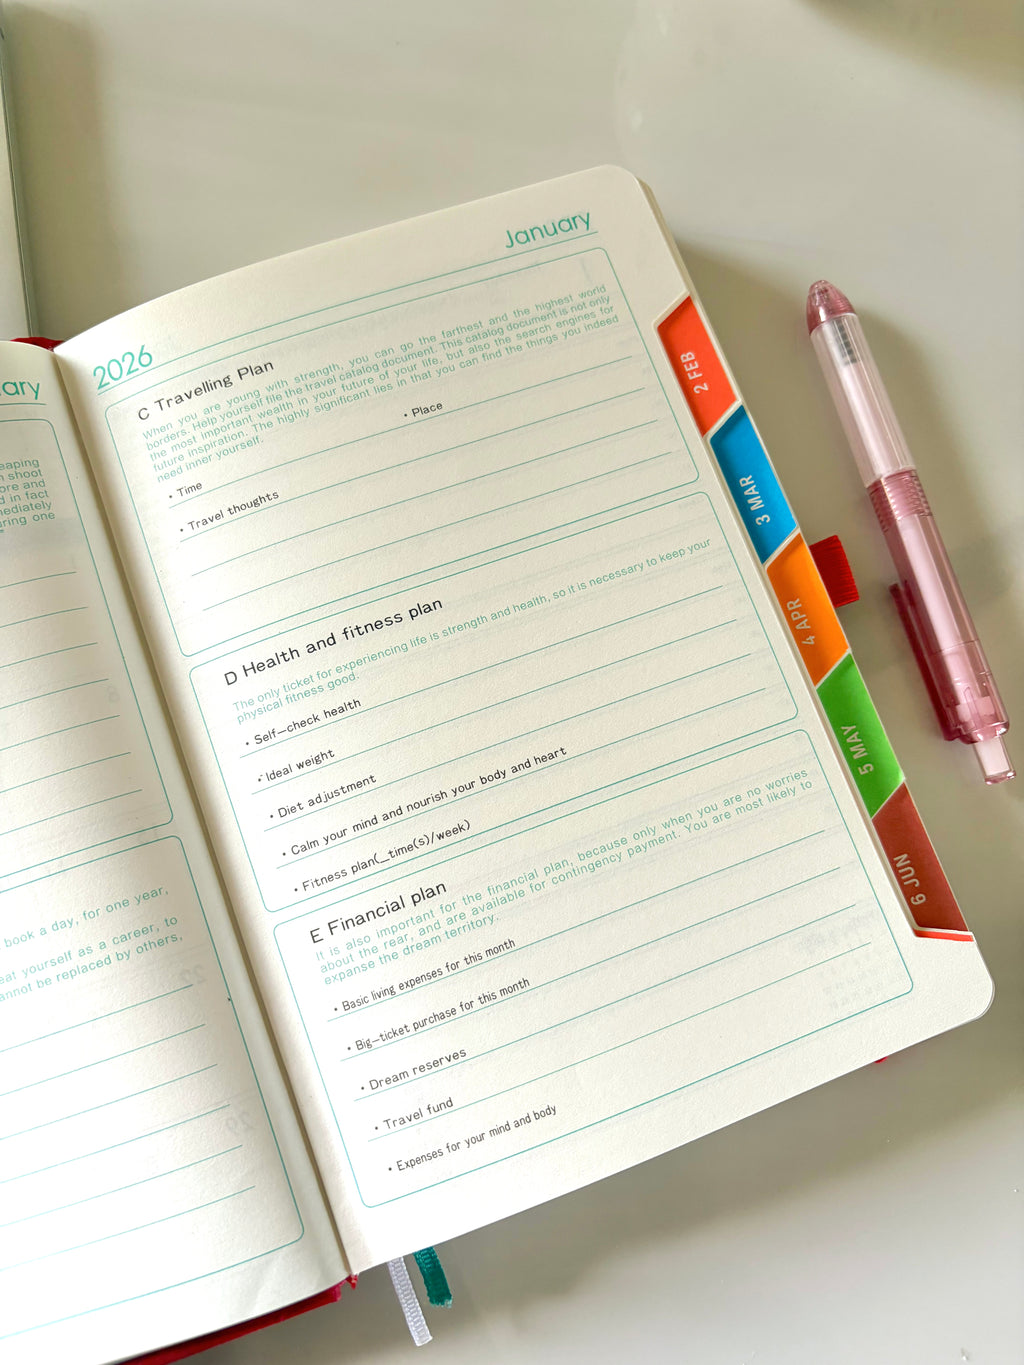 ary
eaping
n shoot
ore and
d in fact
nediately
uring one
book a day, for one year,
eat yourself as a career, to
annot be replaced by others,
2026
January
C Travelling Plan
When you are young with strength, you can go the farthest and the highest world
borders. Help yourself file the travel catalog document. This catalog document is not only
the most important wealth in your future of your life, but also the search engines for
future inspiration. The highly significant lies in that you can find the things you indeed
need inner yourself.
• Time
• Place
• Travel thoughts
D Health and fitness plan
The only ticket for experiencing life is strength and health, so it is necessary to keep your
physical fitness good.
• Self—check health
• Ideal weight
• Diet adjustment
• Calm your mind and nourish your body and heart
• Fitness plan(_time(s)/week)
E Financial plan
It is also important for the financial plan, because only when you are no worries
about the rear, and are available for contingency payment. You are most likely to
expanse the dream territory.
• Basic living expenses for this month
• Big—ticket purchase for this month
• Dream reserves
• Travel fund
• Expenses for your mind and body
2 FEB
3 MAR
4 APR
5 MAY
6 JUN